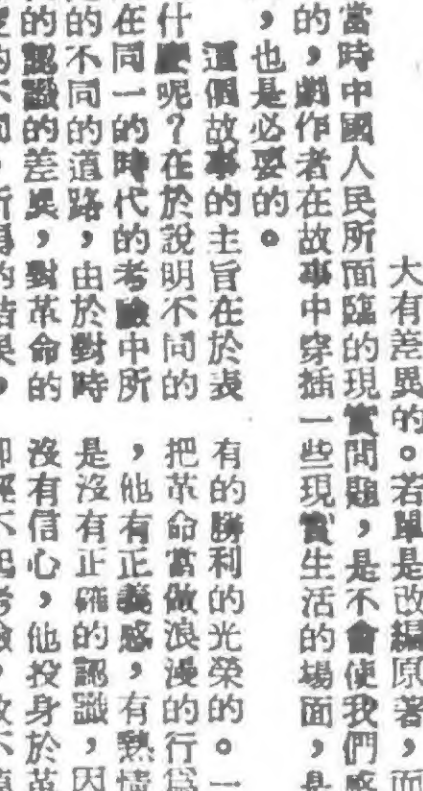 大有差異的。若單是改編原著，而
當時中國人民所面臨的現實問題，是不會使我們感
的，劇作者在故事中穿插一些現實生活的場面，是
，也是必要的。
這個故事的主旨在於表
什麼呢？在於說明不同的
在同一的時代的考驗中所
的不同的道路，由於對時
的認識的差異，對革命的
有的勝利的光榮的。一
把革命當做浪漫的行為
，他有正義感，有熱情
是沒有正確的認識，因
沒有信心，他投身於革